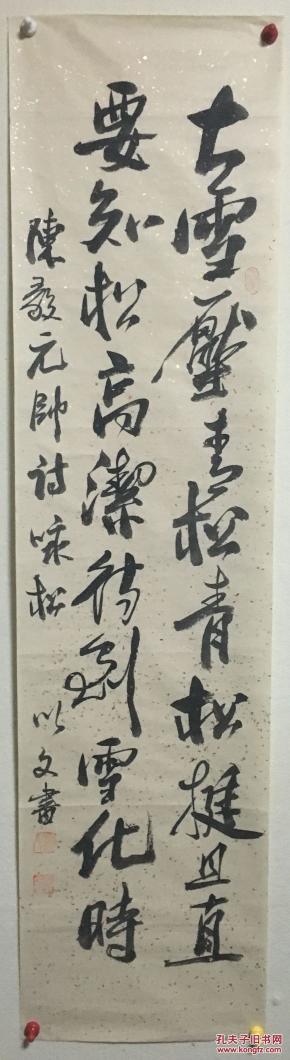 大雪壓青松青松挺且直
要知松高潔待到雪化時
陳毅元帥詩咏松 以文書
孔夫子旧书网
www.kongfz.com